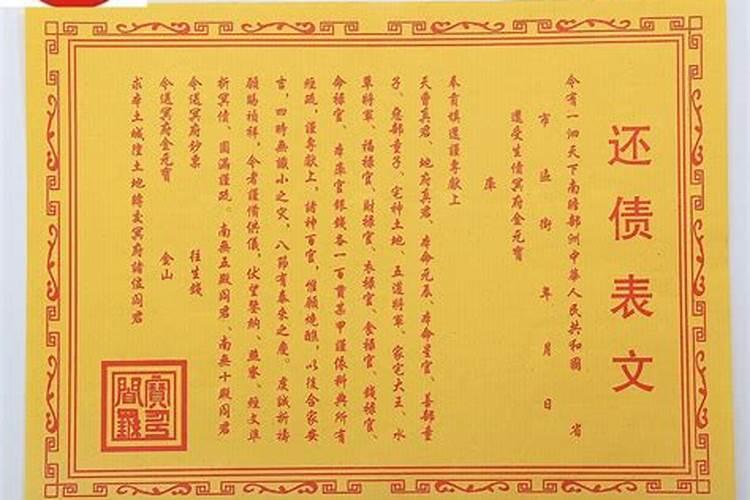 还债表文
今有一泗天下南瞻部洲中華人民共和國 省
市 區 街 年 月 日
還受生債冥府金元寶
庫
奉首填還謹專献上
天曹真君、地府真君、本命元辰、本命星官、善部童
子、惡部童子、宅神土地、五道將軍、家宅大王、水
草將軍、福禄官、財禄官、衣禄官、食禄官、錢禄官、
命禄官、本庫官銀錢各一百貫某甲謹依科典所有
經疏，謹專献上，諸神百官，惟願燒醮，以後合家安
吉，四時無纖小之灾，八節有泰來之慶。虔誠祈禱
願賜禎祥，今者謹備供儀，伏望鑒納、燕寥、經文準
折冥債、圓滿謹疏。南無五殿阎君、南無十殿阎君
今送冥府鈔票 往生錢
今送冥府金元寶 金山
求本土城隍土地轉交冥府諸位阎君